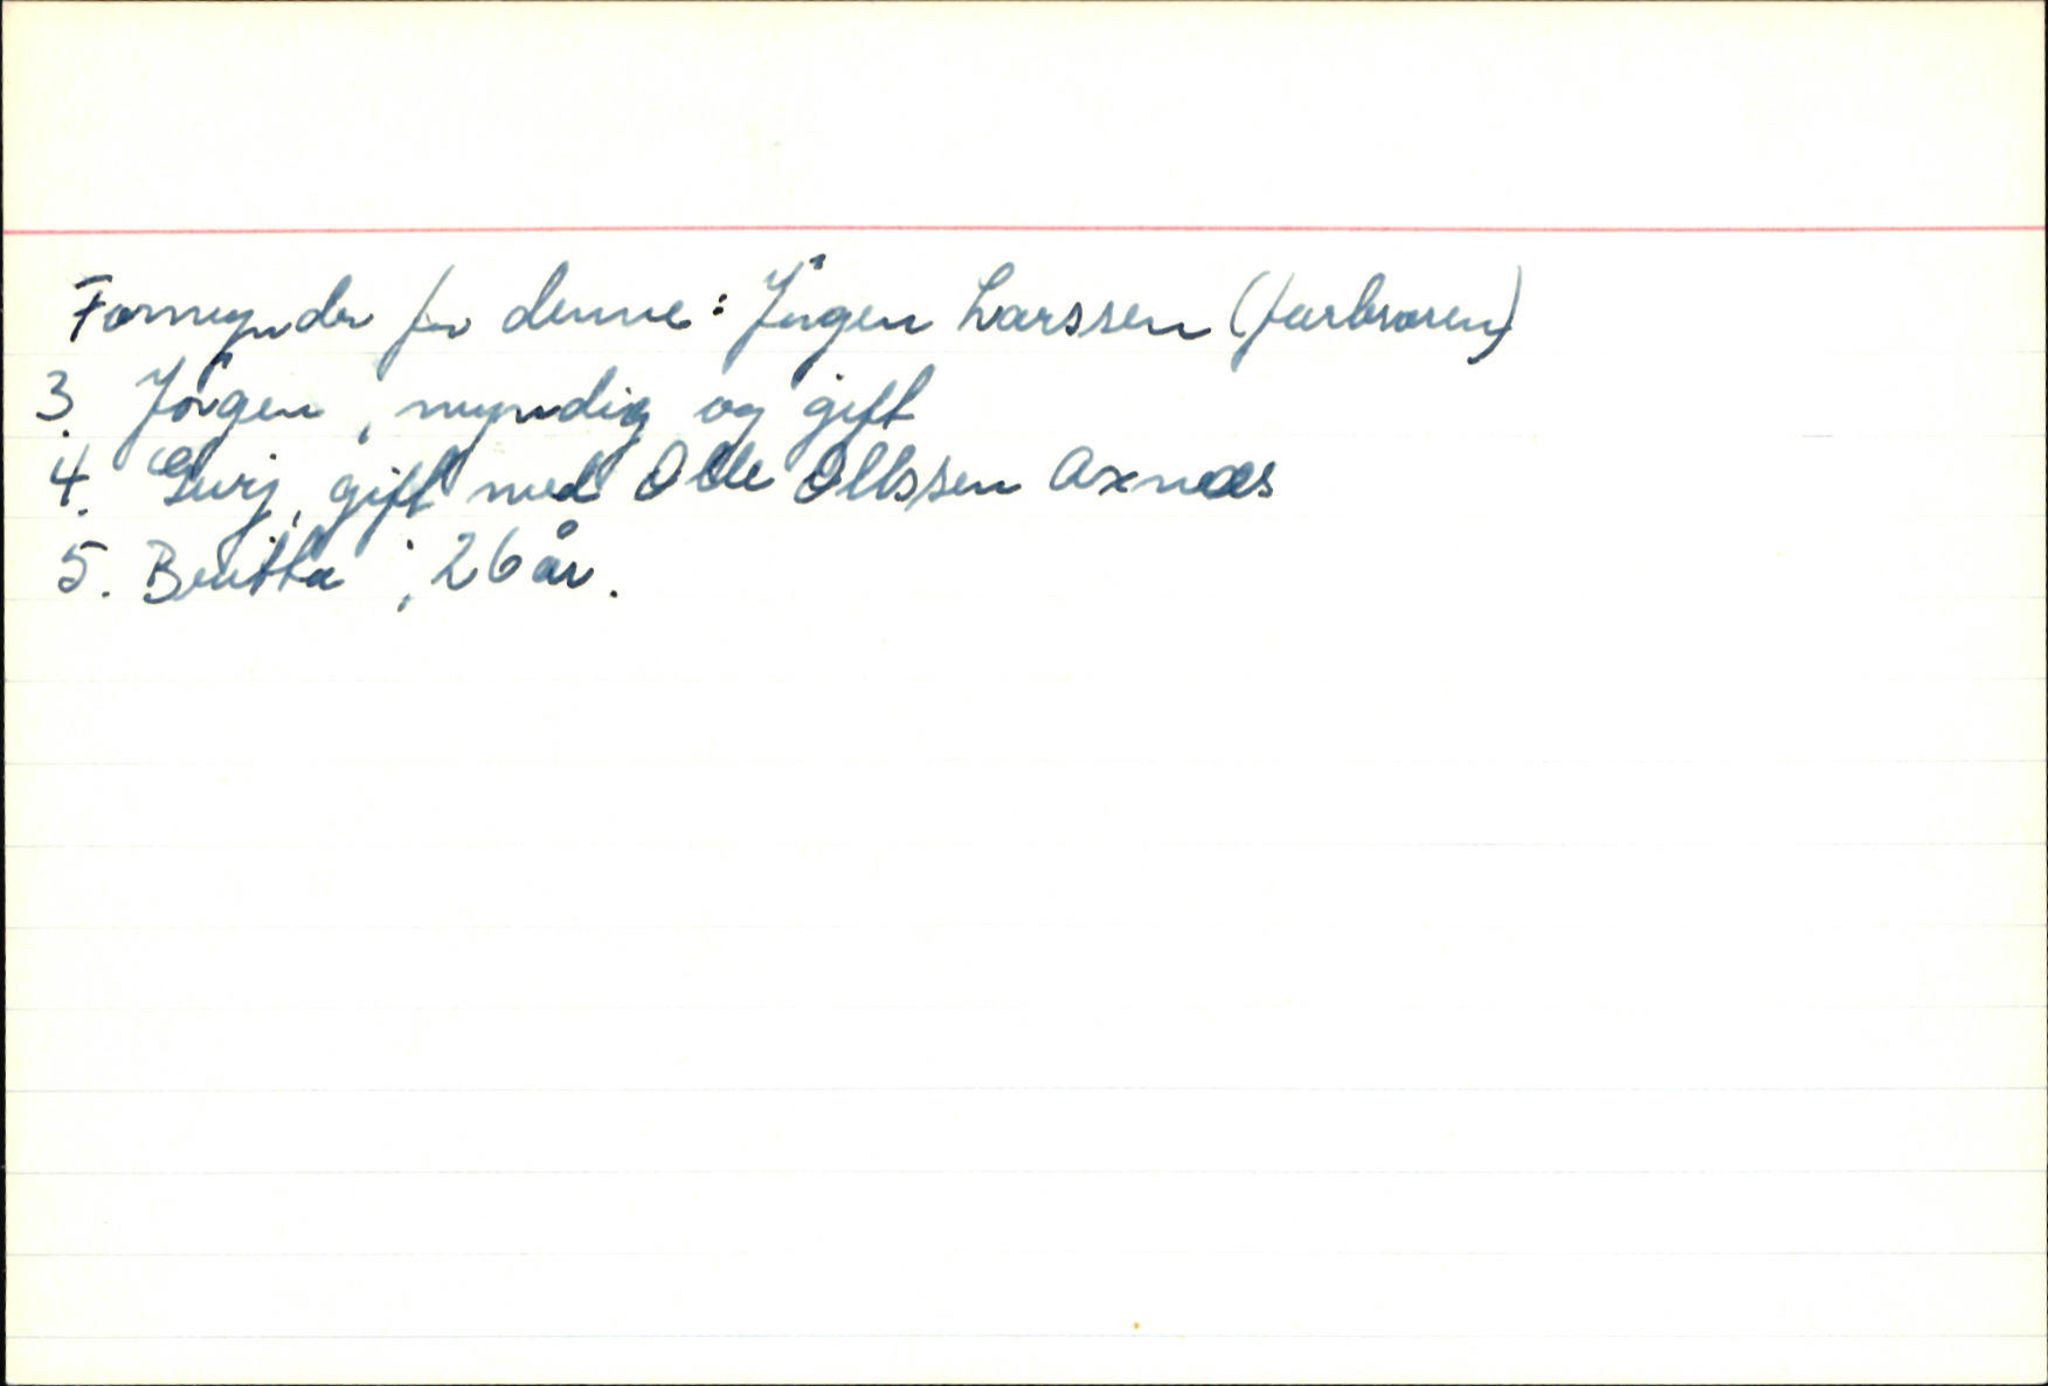 Formynder for denne: Jörgen Larssen (farbroren)
3. Jörgen, myndig og gift
4. Gurj, gift med Olle Ollssen Axnæs
5. Beritta, 26 år.